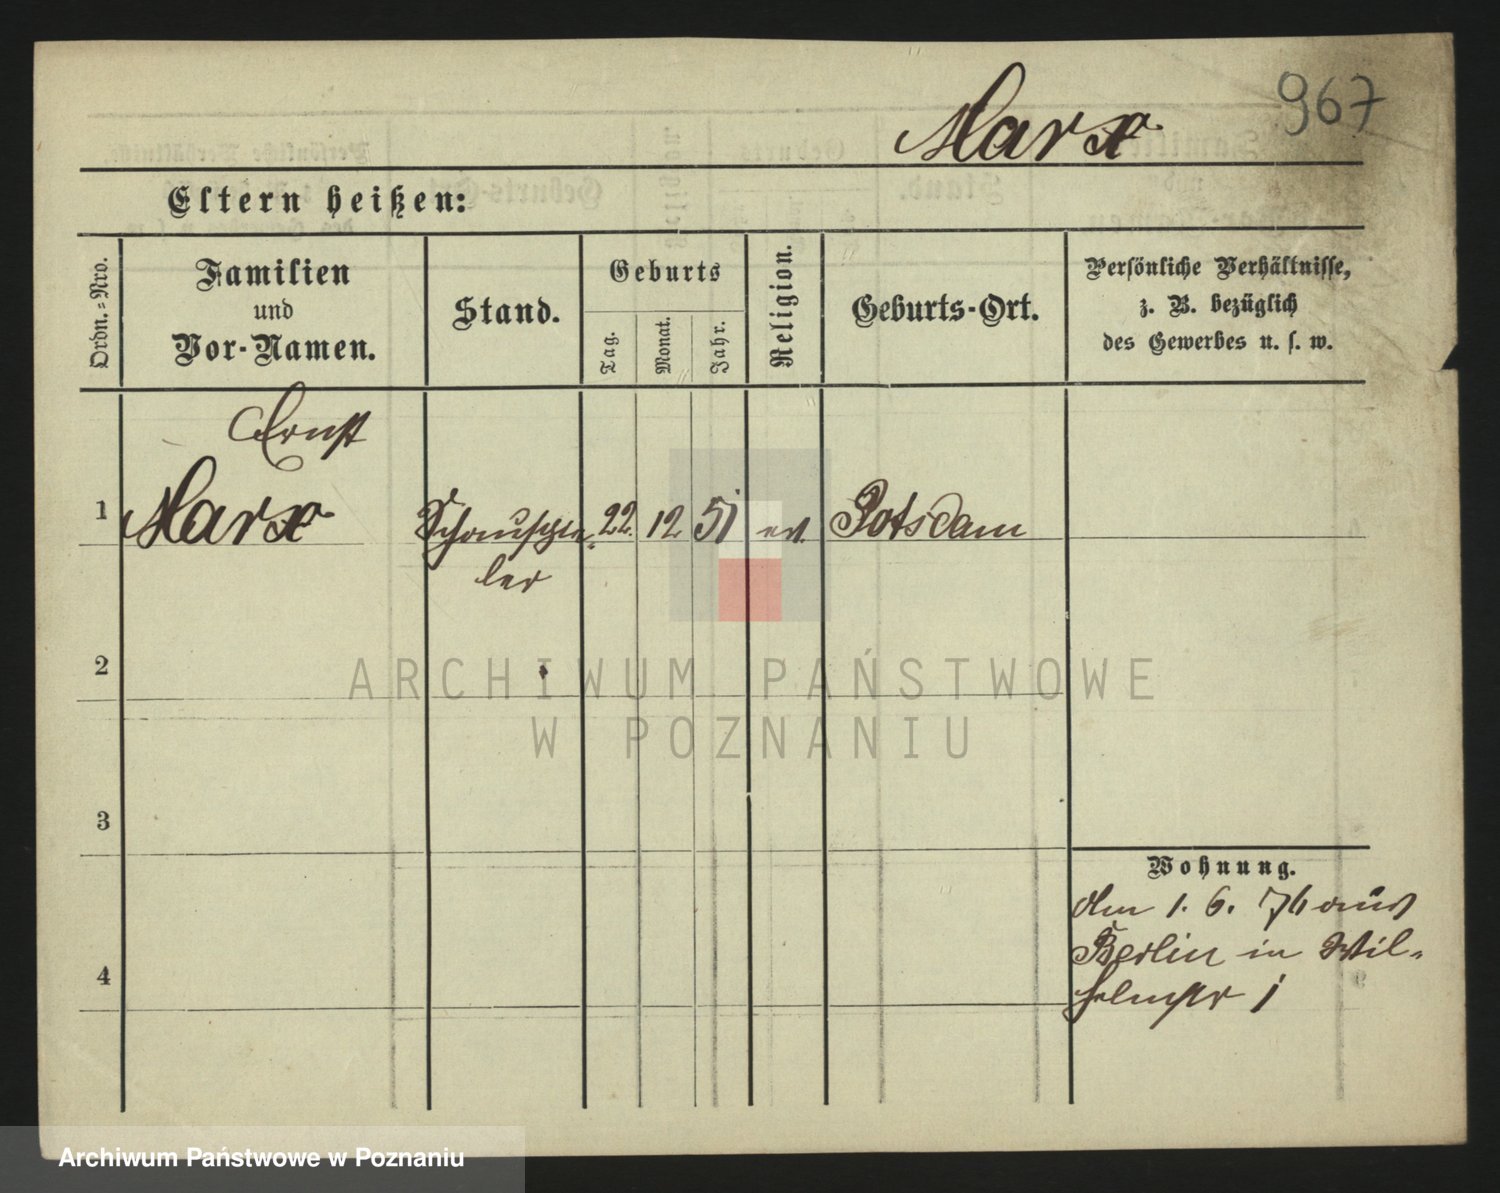 967
Marx
Eltern heißen:
Ordn.-Nro.
Familien
und
Vor-Namen.
Stand.
Geburts
Tag.
Monat.
Jahr.
Religion.
Geburts-Ort.
Persönliche Verhältnisse,
z. B. bezüglich
des Gewerbes u. s. w.
Ernst
1 Marx Schauspie- 22. 12 51 ev. Potsdam
ler
2
3
4
Wohnung.
Am 1. 6. 76 aus
Berlin in Wil-
helmstr 1
ARCHIWUM PAŃSTWOWE
W POZNANIU
Archiwum Państwowe w Poznaniu